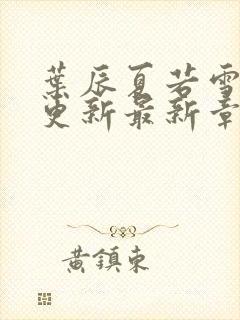 葉辰夏若雪
更新最新章
黃鎮東